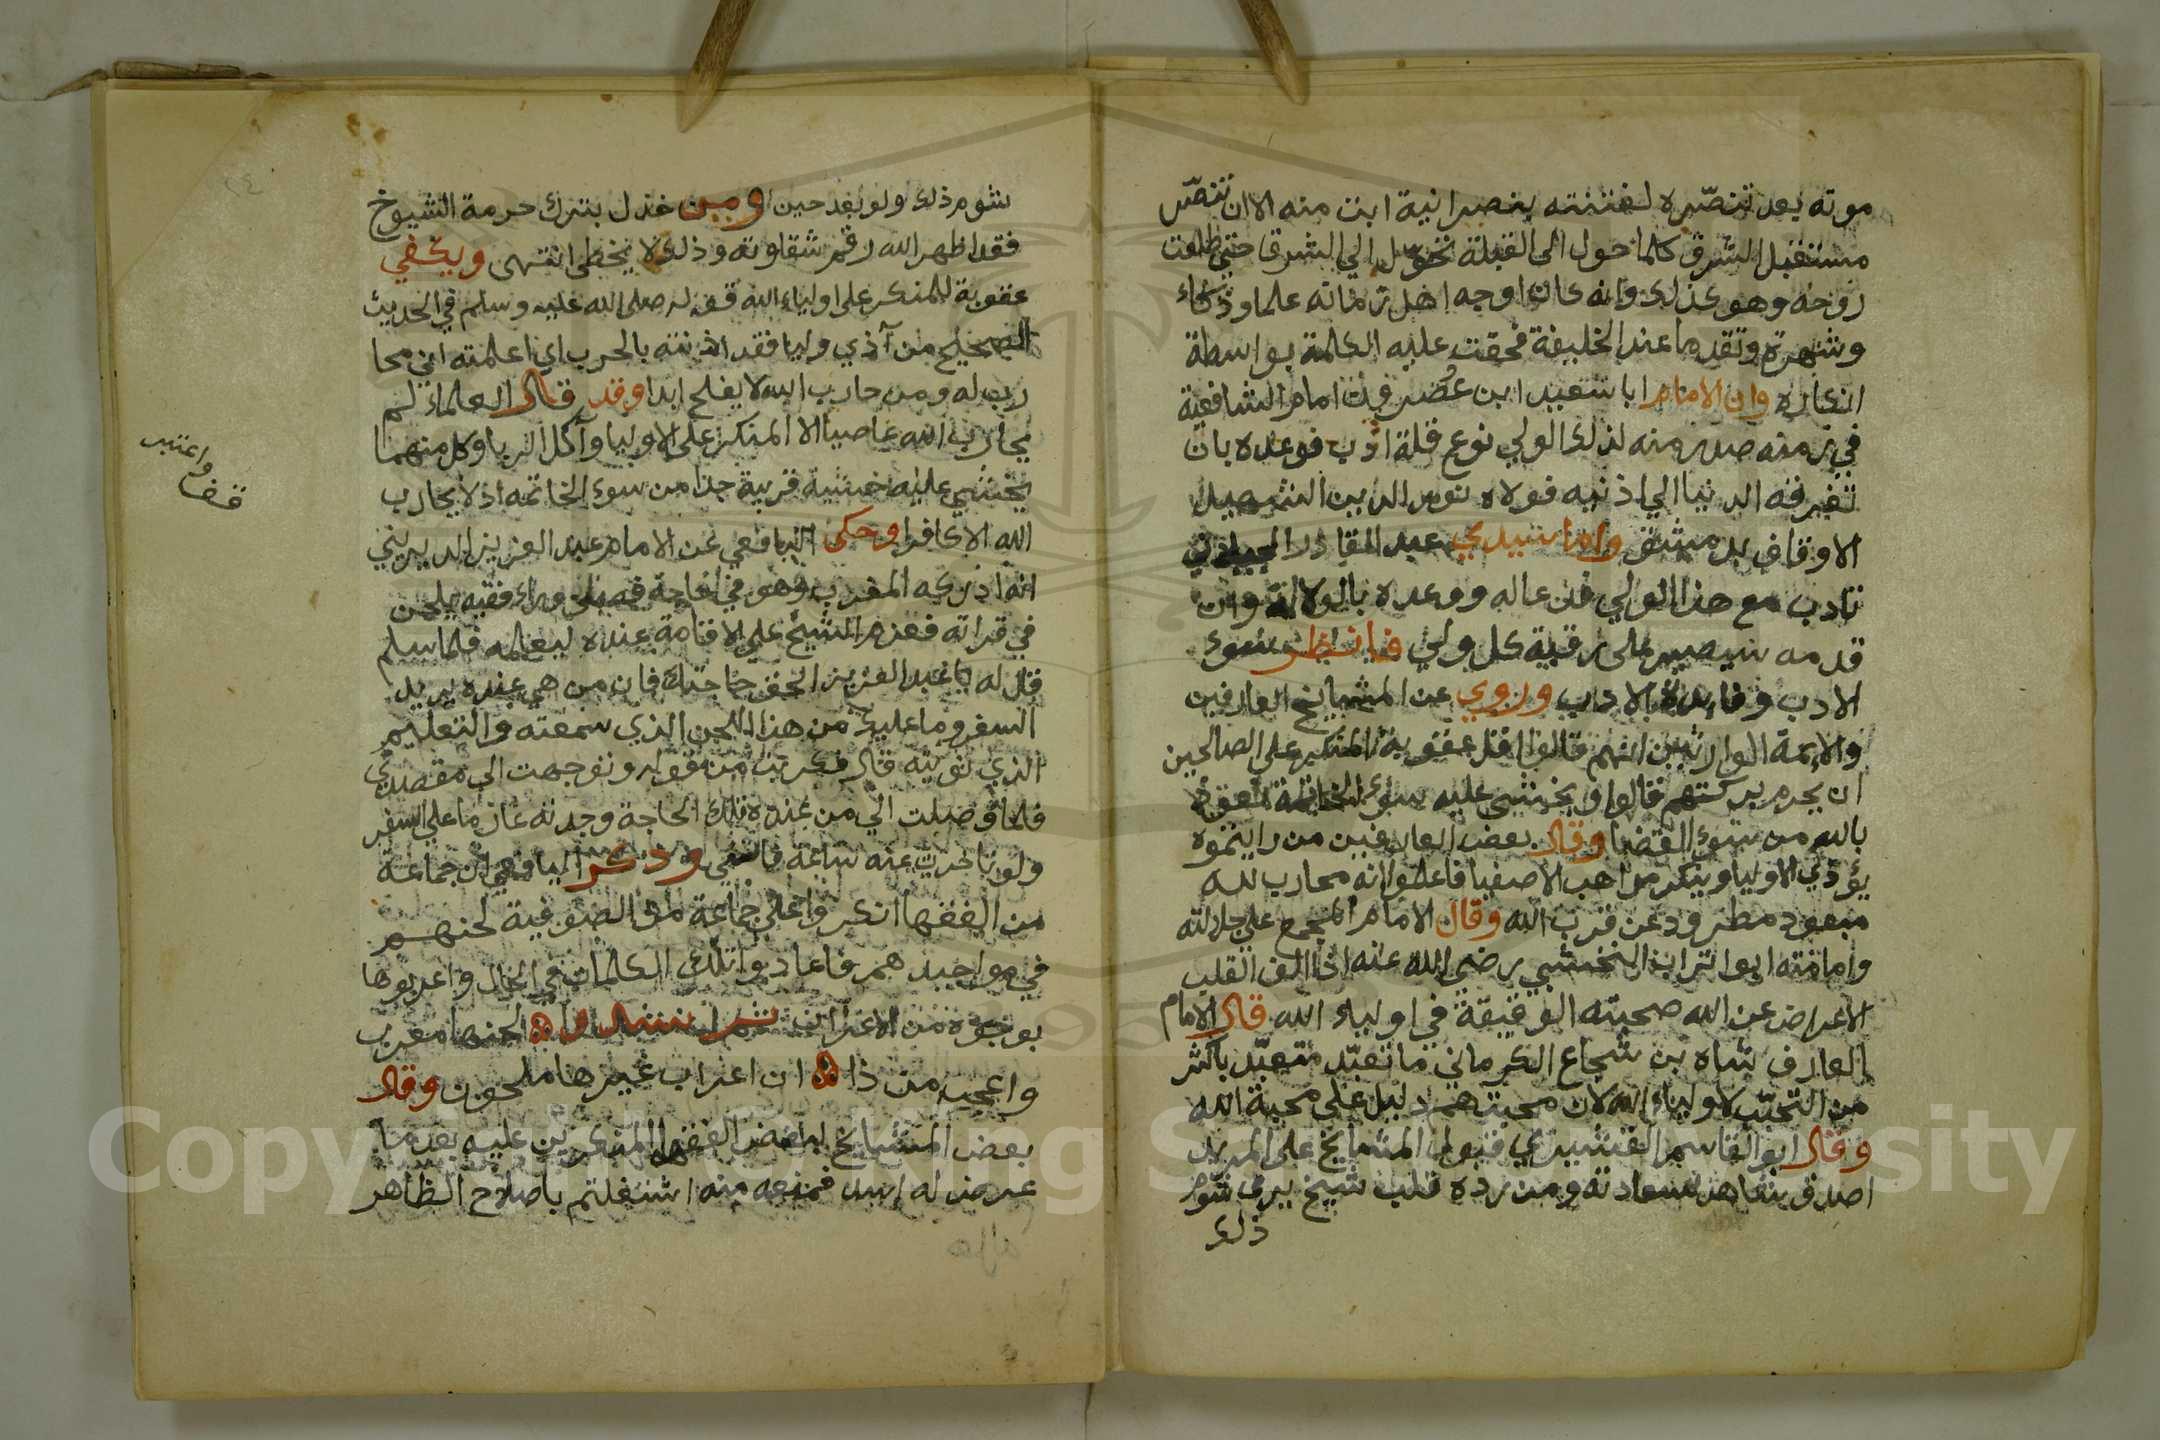 موته بعد تنصّره لفتنته بنصرانية ابت منه الا ان تنصّر
مستقبل الشرق كلما حول الى القبلة تحوّل الي الشرق حتى طلعت
روحه وهو كذلك وانه كان اوجه اهل زمانه علما وذكاء
وشهرة وتقدما عند الخليفة فحقت عليه الكلمة بواسطة
انكاره وان الامام ابا سعيد ابن عصرون امام الشافعية
في زمنه صدر منه لذلك الولي نوع قلة ادب فوعده بان
تغرقه الدنيا الي اذنيه فولاه نور الدين الشهيد
الاوقاف بدمشق واما سيدي عبد القادر الجيلاني
تادب مع هذا الولي فدعا له ووعده بالولاية وان
قدمه سيصير على رقبة كل ولي فانظر سوء
الادب وفايدة الادب وروي عن المشايخ العارفين
والايمة الوارثين انهم قالوا اقل عقوبة المنكر على الصالحين
ان يحرم بركتهم قالوا ويخشي عليه سوء الخاتمة نعوذ
بالله من سوء القضا وقال بعض العارفين من رايتموه
يؤذي الاوليا وينكر مواهب الاصفيا فاعلموا انه محارب لله
مبعود مطرود عن قرب الله وقال الامام المجمع على جلالته
وامامته ابوا تراب النخشبي رضي الله عنه اذا الف القلب
الاعراض عن الله صحبته الوقيقة في اولياء الله قال الامام
العارف شاه بن شجاع الكرماني ما تعبّد متعبّد باكثر
من التحبّب لاولياء الله لان محبتهم دليل على محبة الله
وقال ابو القاسم القشيري قبول المشايخ على المريد
اصدق شاهد لسعادته ومن رده قلب شيخ يرى شوم
ذلك
شوم ذلك ولو بعد حين ومن خذل بترك حرمة الشيوخ
فقد اظهر الله رقم شقاوته وذلك لا يخطى انتهى ويكفي
عقوبة للمنكر على اولياء الله قوله صلى الله عليه وسلم في الحديث
الصحيح من آذي وليا فقد اذنته بالحرب اي اعلمته اني محا
رب له ومن حارب الله لا يفلح ابدا وقد قال العلماء لم
يحارب الله عاصيا الا المنكر على الاوليا وآكل الربا وكل منهما
يخشي عليه خشية قريبة جدا من سوء الخاتمه اذ لا يحارب
الله الا كافرا وحكى اليافعي عن الامام عبد العزيز الديريني
انه ادركه المغرب وهو في حاجة فصلى وراء فقيه يلحن
في قراته فعزم الشيخ على الاقامة عنده ليعلمه فلما سلم
قال له يا عبد العزيز الحق حاجتك فان من هي عنده يريد
السفر وما عليك من هذا اللحن الذي سمعته والتعليم
الذي نويته قال فعجبت من قوله وتوجهت الى مقصدي
فلما وصلت الي من عنده تلك الحاجة وجدته عازما على السفر
ولو تاخرت عنه ساعة فاتني وذكر اليافعي ان جماعة
من الفقها انكروا على جماعة من الصوفية لحنهم
في مواجيدهم فاعادوا تلك الكلمات في الحال واعربوها
بوجوه من الاعراب ثم انشدوا لحنها معرب
واعجب من ذا ان اعراب غيرها ملحون وقال
بعض المشايخ لبعض الفقها المنكرين عليه بعد ما
عرض له اسد فمنعه منه اشتغلتم باصلاح الظاهر
واعتبر
قف